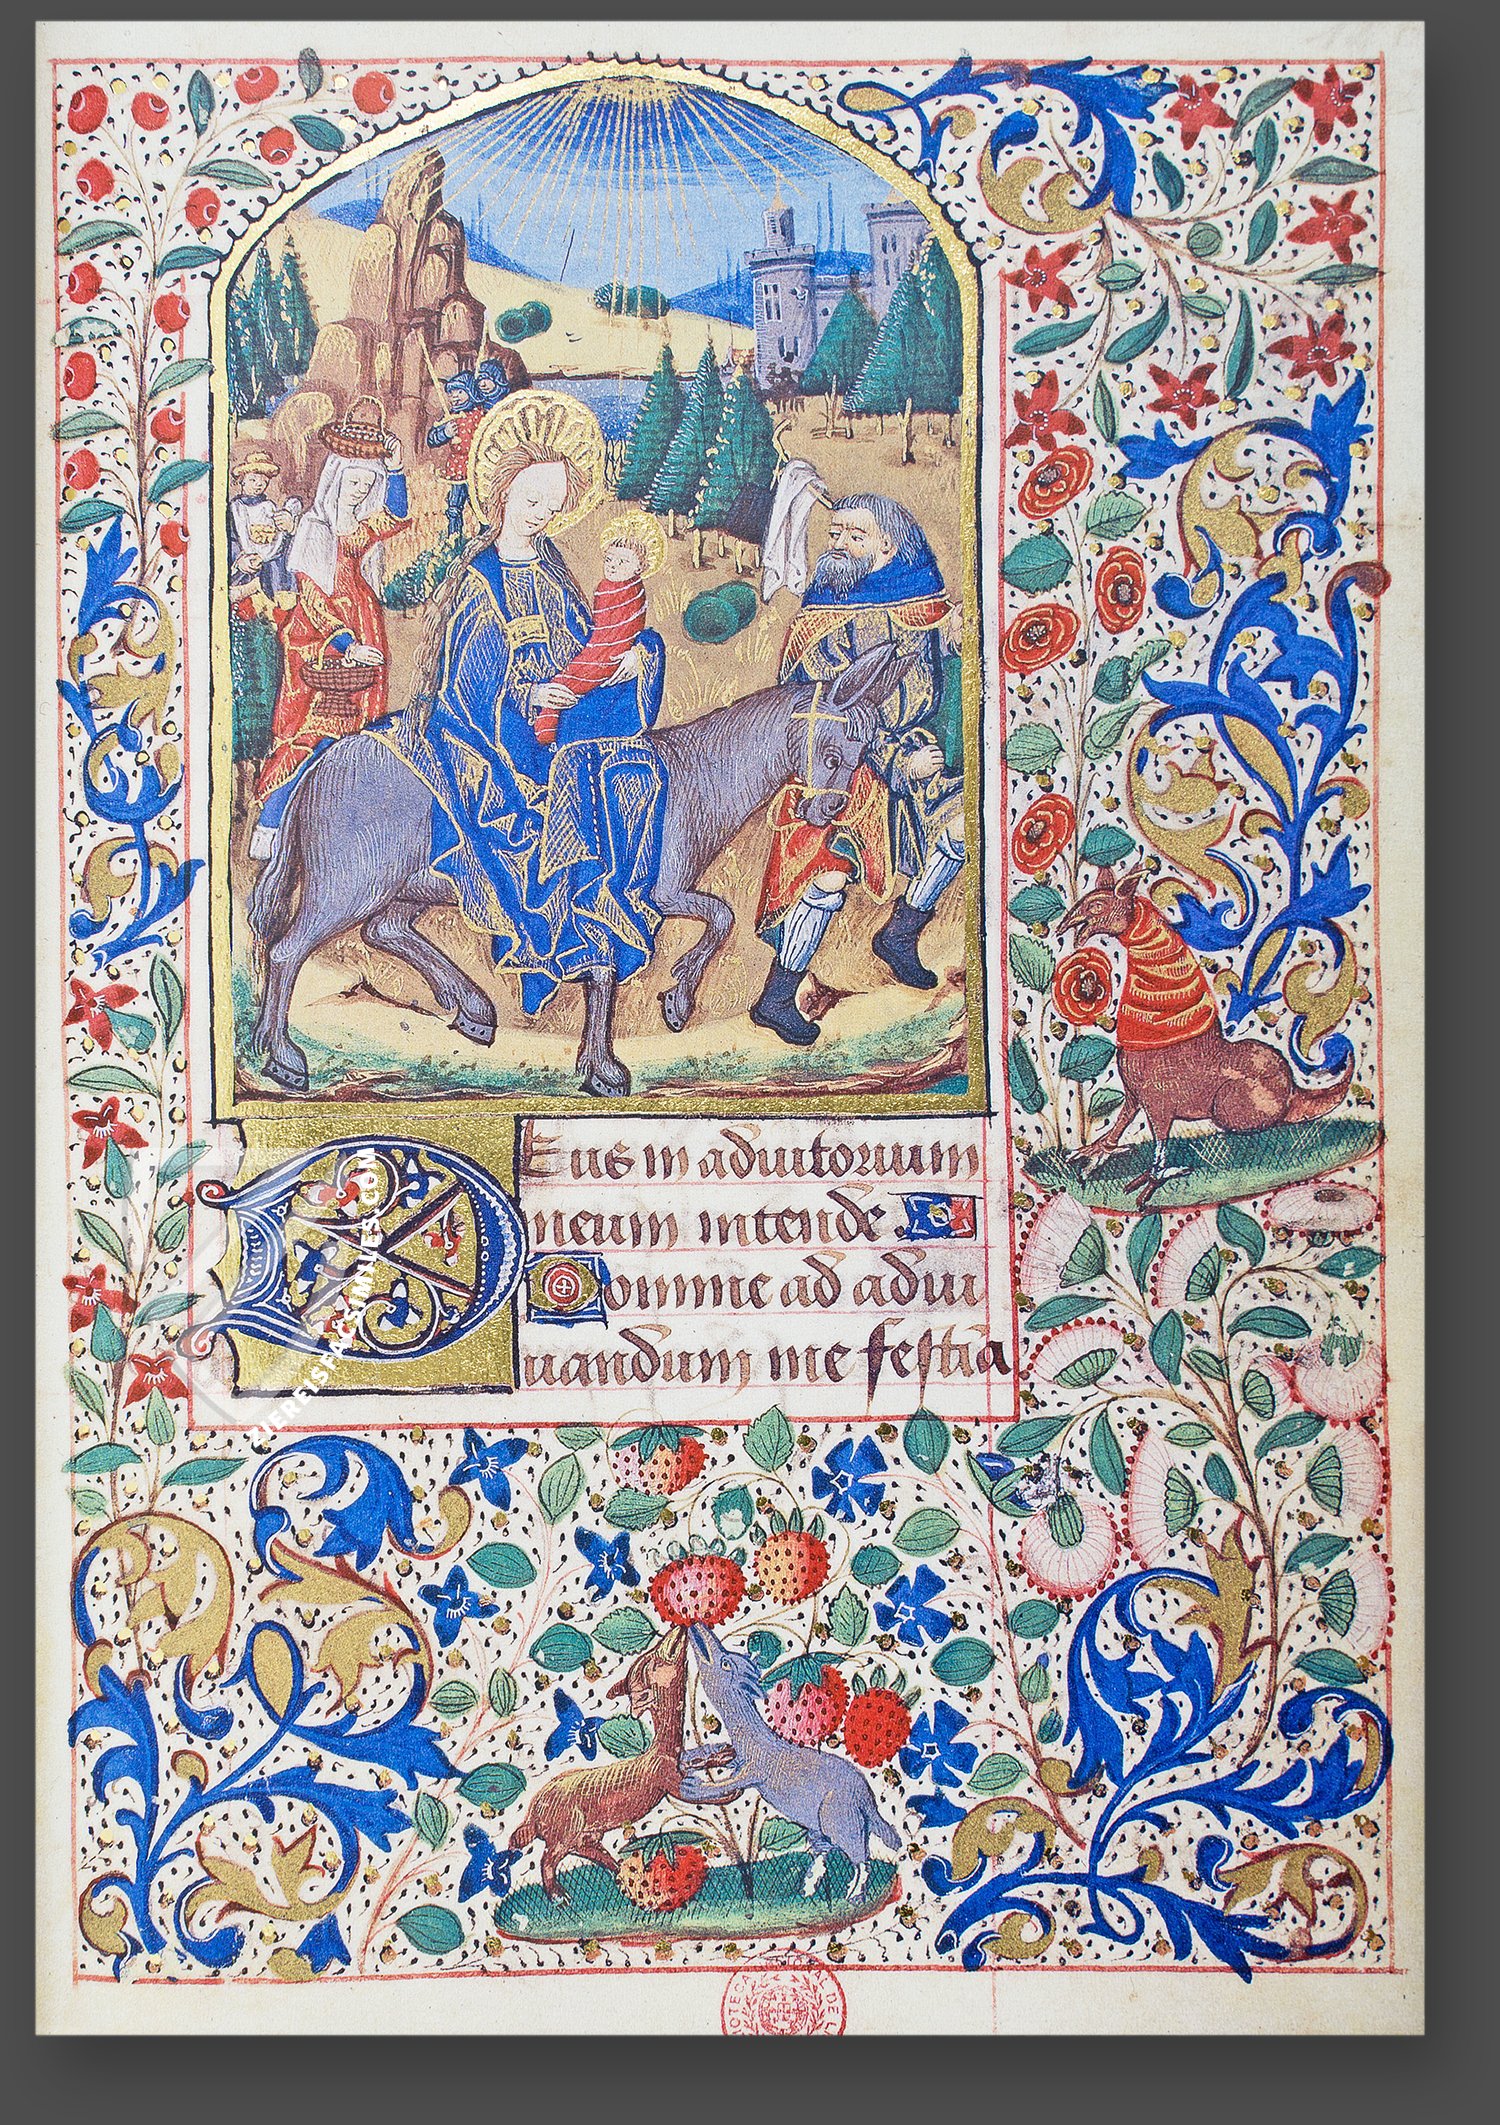 Deus in adiutorium
meum intende
Domine ad adiu
uandum me festina
ZIEREISFACSIMILES.COM